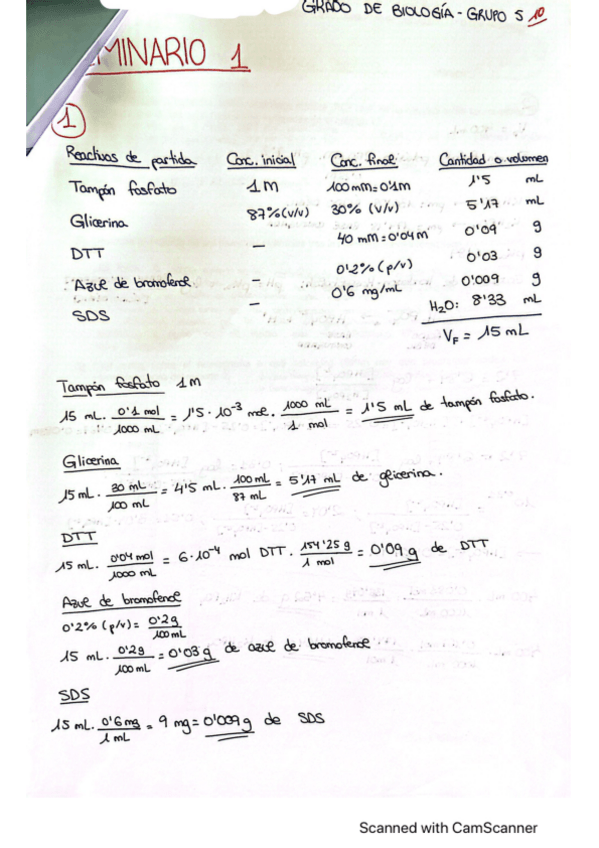 GRADO DE BIOLOGÍA - GRUPO 5 10
MINARIO 1
1
Reactivos de partida Conc. inicial Conc. final Cantidad o volumen
Tampón fosfato 1 M 100 mM = 0'1 M 1'5 mL
Glicerina 87% (v/v) 30% (v/v) 5'17 mL
DTT - 40 mM = 0'04 M 0'09 g
Azul de bromofenol - 0'2% (p/v) 0'03 g
SDS - 0'6 mg/mL 0'009 g
H2O: 8'33 mL
VF = 15 mL
Tampón fosfato 1 M
15 mL · 0'1 mol / 1000 mL = 1'5 · 10⁻³ mol · 1000 mL / 1 mol = 1'5 mL de tampón fosfato.
Glicerina
15 mL · 30 mL / 100 mL = 4'5 mL · 100 mL / 87 mL = 5'17 mL de glicerina.
DTT
15 mL · 0'04 mol / 1000 mL = 6 · 10⁻⁴ mol DTT · 154'25 g / 1 mol = 0'09 g de DTT
Azul de bromofenol
0'2% (p/v) = 0'2 g / 100 mL
15 mL · 0'2 g / 100 mL = 0'03 g de azul de bromofenol
SDS
15 mL · 0'6 mg / 1 mL = 9 mg = 0'009 g de SDS
Scanned with CamScanner